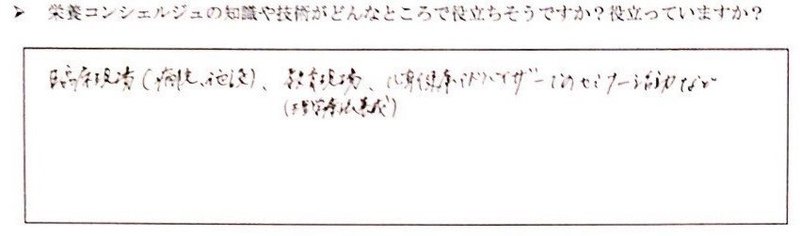 ➢ 栄養コンシェルジュの知識や技術がどんなところで役立ちそうですか？役立っていますか？
臨床現場(病院、施設)、教育現場、心身健康アドバイザーでのセミナー活動など